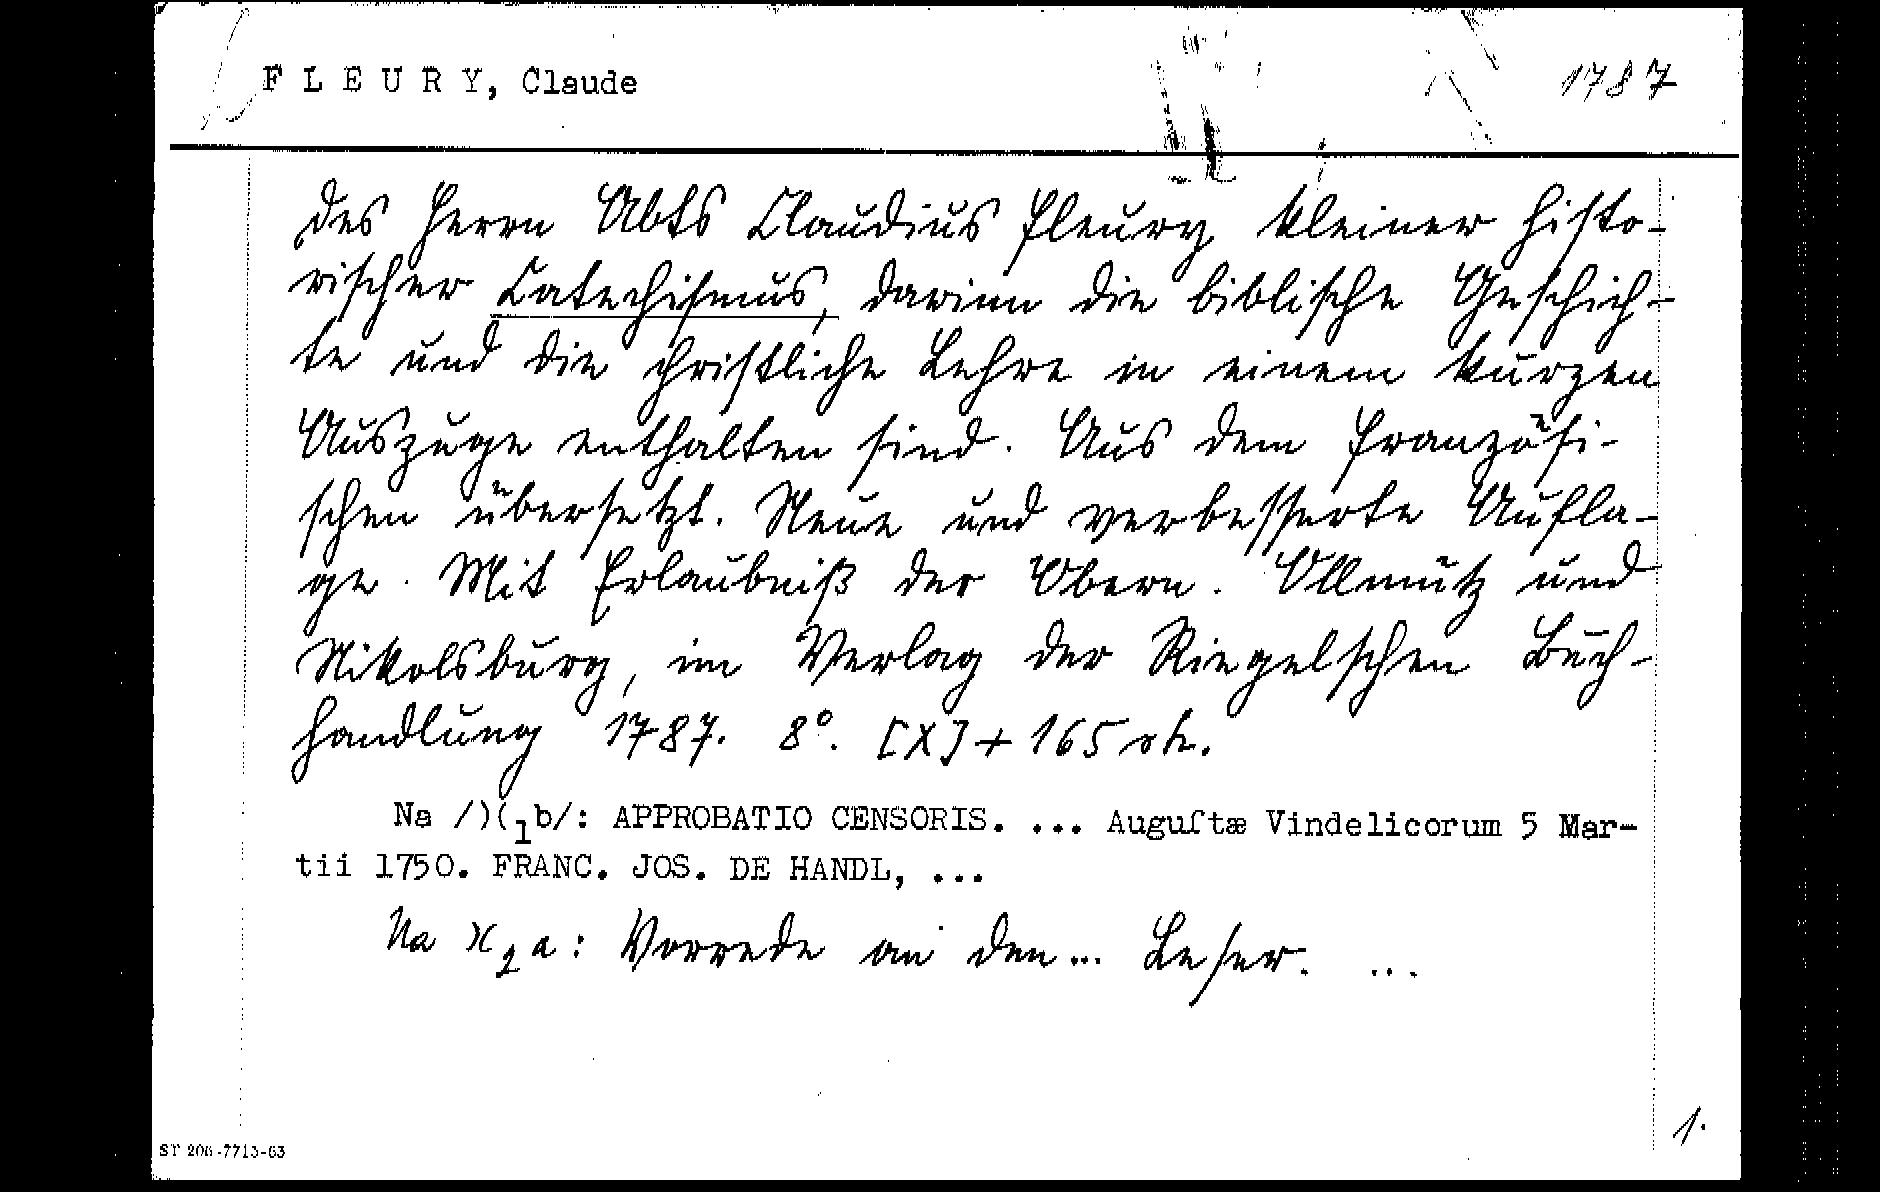 FLEURY, Claude 1787
Des Herrn Abts Claudius Fleury kleiner histo-
rischer Catechismus, darinn die biblische Geschich-
te und die christliche Lehre in einem kurzen
Auszuge enthalten sind. Aus dem Französi-
schen übersetzt. Neue und verbesserte Aufla-
ge. Mit Erlaubniß der Obern. Ollmütz und
Nikolsburg, im Verlag der Riegelschen Buch-
handlung 1787. 8°. [X]+165 str.
Na /)(1b/: APPROBATIO CENSORIS. ... Auguſtæ Vindelicorum 5 Mar-
tii 1750. FRANC. JOS. DE HANDL, ...
Na )(2a: Vorrede an den... Leser. ...
1.
ST 206-7713-63